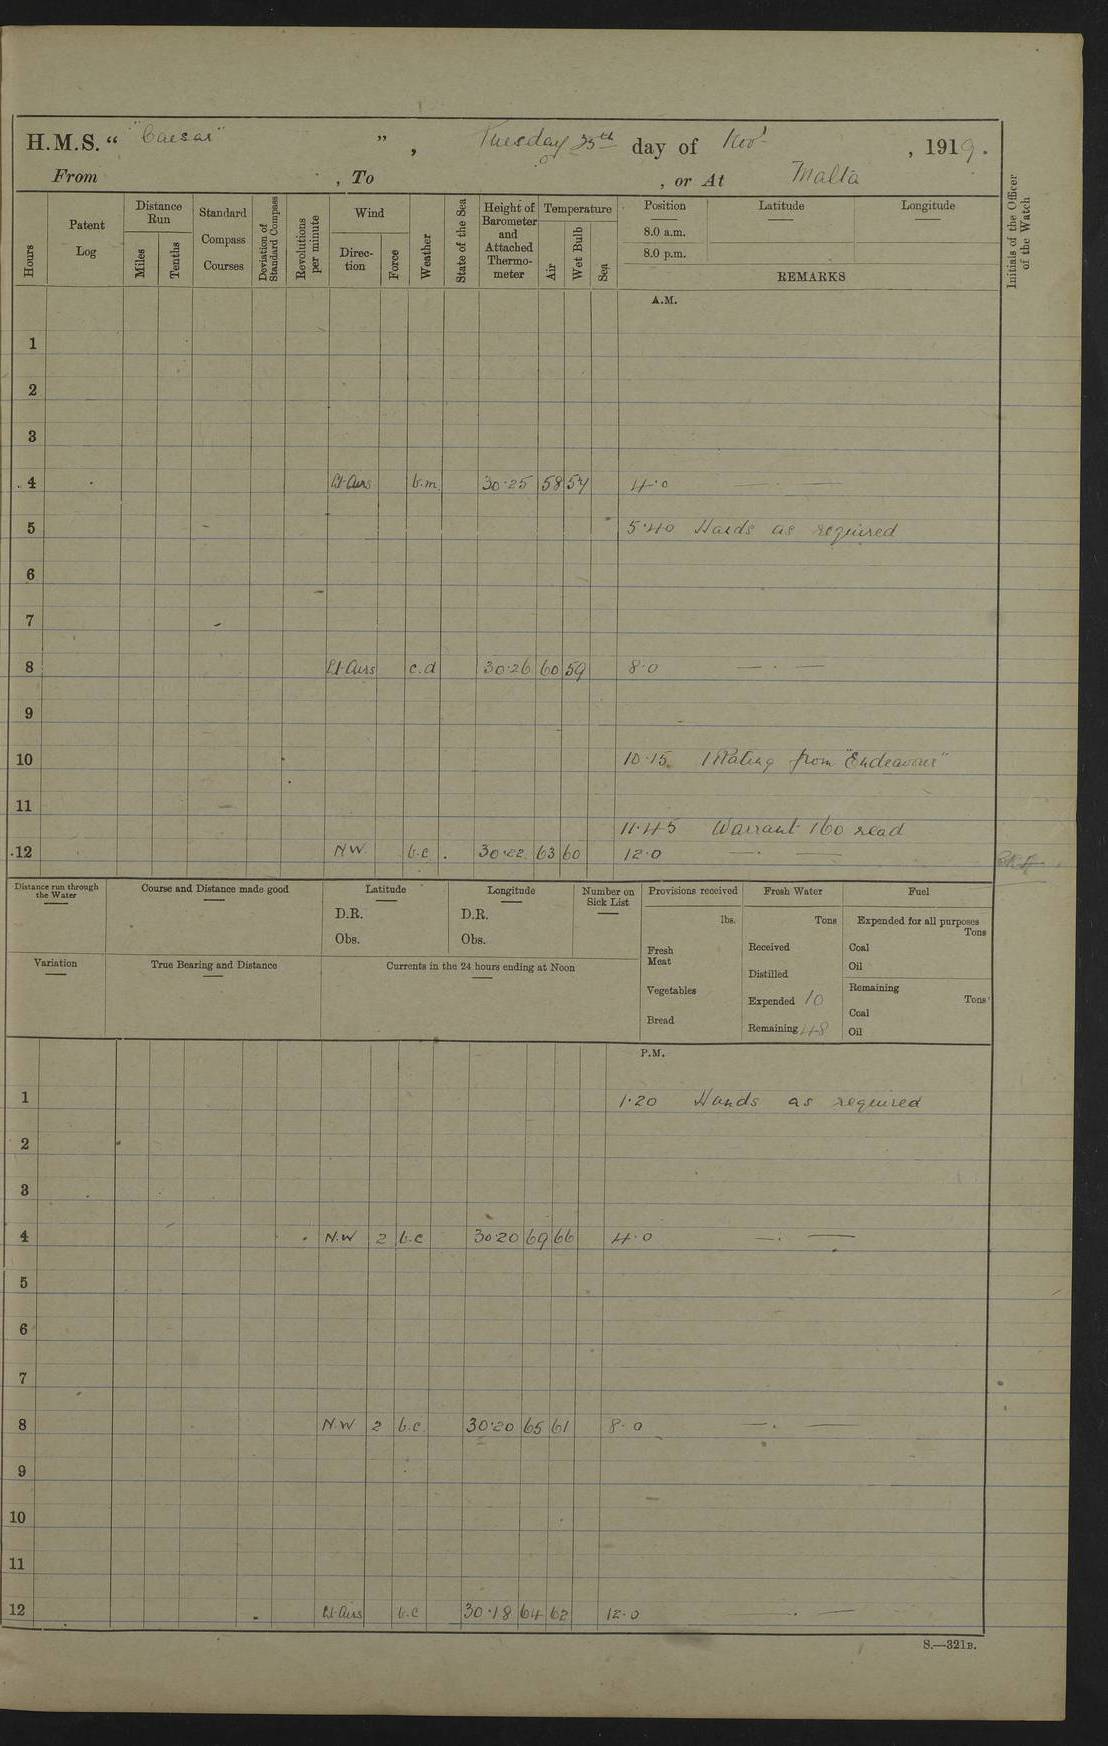 H.M.S. “ "Caesar" ” , Tuesday 25th day of Novr , 1919.
From , To , or At Malta
Hours
Patent Log
Distance Run
Miles
Tenths
Standard Compass Courses
Deviation of Standard Compass
Revolutions per minute
Wind
Direction
Force
Weather
State of the Sea
Height of Barometer and Attached Thermometer
Temperature
Air
Wet Bulb
Sea
Position Latitude Longitude
8.0 a.m.
8.0 p.m.
REMARKS
Initials of the Officer of the Watch
A.M.
1
2
3
4 Lt Airs b.m 30.25 58 57 4.0 —
5 5.40 Hands as required
6
7
8 Lt Airs c.d 30.26 60 59 8.0 — . —
9
10 10.15. 1 Rating from "Endeavour"
11
11.45 Warrant 160 read
12 NW b.c. 30.22 63 60 12.0 — . —
Distance run through the Water
Course and Distance made good
Latitude
D.R.
Obs.
Longitude
D.R.
Obs.
Number on Sick List
Provisions received
lbs.
Fresh Meat
Vegetables
Bread
Fresh Water
Tons
Received
Distilled
Expended 10
Remaining 48
Fuel
Expended for all purposes
Tons
Coal
Oil
Remaining
Tons
Coal
Oil
Variation
True Bearing and Distance
Currents in the 24 hours ending at Noon
P.M.
1 1.20 Hands as required
2
3
4 N.W 2 b.c 30.20 69 66 4.0 — . —
5
6
7
8 N.W 2 b.c. 30.20 65 61 8.0 — . —
9
10
11
12 Lt Airs b.c 30.18 64 62 12.0 . —
S.—321B.